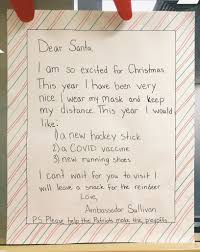 Dear Santa,
I am so excited for Christmas.
This year I have been very
nice. I wear my mask and keep
my distance. This year I would
like:
1) a new hockey stick
2) a COVID vaccine
3) new running shoes
I can't wait for you to visit I
will leave a snack for the reindeer
Love,
Ambassador Sullivan
P.S. Please help the Patriots make the playoffs